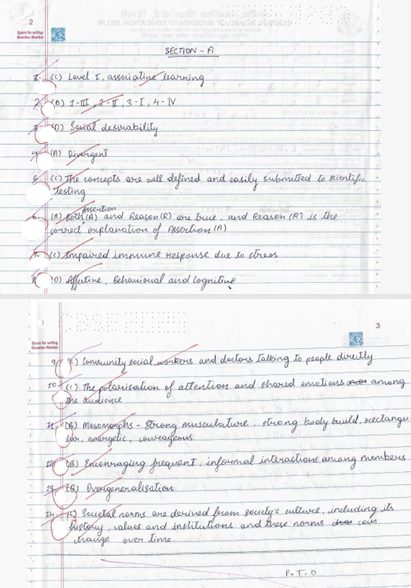 2
Space for writing
Question Number
SECTION - A
1. (C) Level I, associative learning
2. (B) 1-III, 2-II, 3-I, 4-IV
3. (D) Social desirability
4. (A) Divergent
5. (C) The concepts are well defined and easily submitted to scientific
testing
Assertion
6. (A) Both (A) and Reason (R) are true, and Reason (R) is the
correct explanation of Assertion (A)
7. (C) Impaired immune response due to stress
8. (D) Affective, Behavioural and Cognitive
3
Space for writing
Question Number
9. Community social workers and doctors talking to people directly
10. (C) The polarisation of attention and shared emotions among
the audience
11. (B) Mesomorphs - Strong musculature, strong body build, rectangu-
lar, energetic, courageous
12. (B) Encouraging frequent, informal interactions among members
13. (B) Overgeneralisation
14. (C) Societal norms are derived from society's culture, including its
history, values and institutions and these norms can
change over time
P.T.O